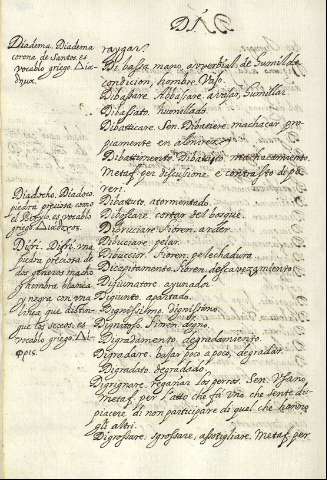 Diadema. Diadema
corona de Santos, es
vocablo griego. Διάδ
ημα.
Diadocho. Diadoco.
piedra preciosa como
el Berylo, es vocablo
griego. Διάδοχος.
Difri. Difri. una
piedra preciosa de
dos generos macho
y hembra blanca
y negra con una
linea que distin-
gue los sexos. es
vocablo griego.
raygar.
Di bassa mano, adverbial. de humilde
condicion, hombre vaso.
Dibassare. Abbassare. avasar, humillar
Dibassato. humillado.
Dibatticare. Sen. Dibattere. machacar pro
piamente en almirez.
Dibattimento. Dibattito. machacamiento.
Metaf. per discussione e contrasto di pa
reri.
Dibatuto. atormentado.
Diboscare. cortar del bosque.
Dibruciare. Fioren. arder.
Dibuciare. pelar.
Fioren. peladura.
Dicapitamento. Fioren. descavezamiento
Digiunatore. ayunador
Digiunto. apartado.
Dignissimo. dignissimo.
Dignitoso. Fioren. digno.
Digradamento. degradamiento.
Digradare. bajar poco a poco, degradar.
Digradato. degradado.
Digrignare. regañar los perros. Sen. Usano
Metaf. per l'atto che fa uno che sente dis
piacere di non participare di quel che hanno
gli altri.
Digrossare. sgrossare, assotigliare. Metaf. per